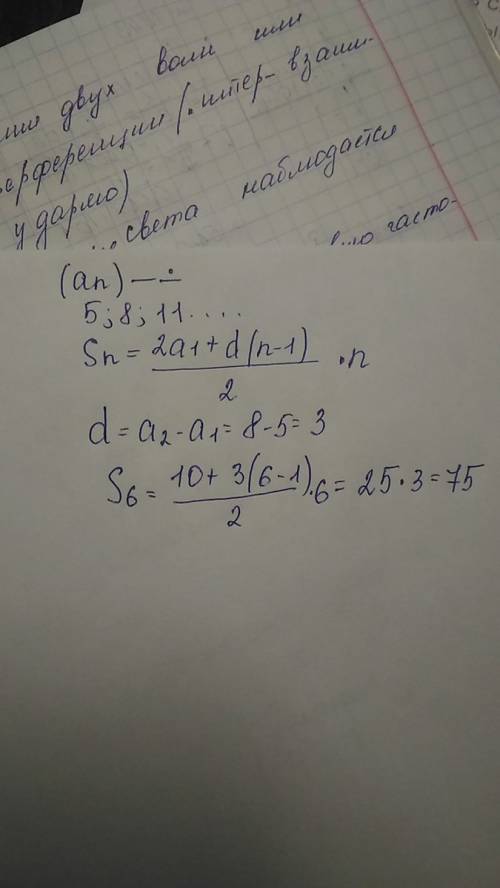 двух волн или
(интер- взаим-
ударяю)
света наблюдается
часто-
(an) — ÷
5; 8; 11 ....
Sn = 2a1 + d(n-1) / 2 · n
d = a2 - a1 = 8 - 5 = 3
S6 = 10 + 3(6-1) / 2 · 6 = 25 · 3 = 75